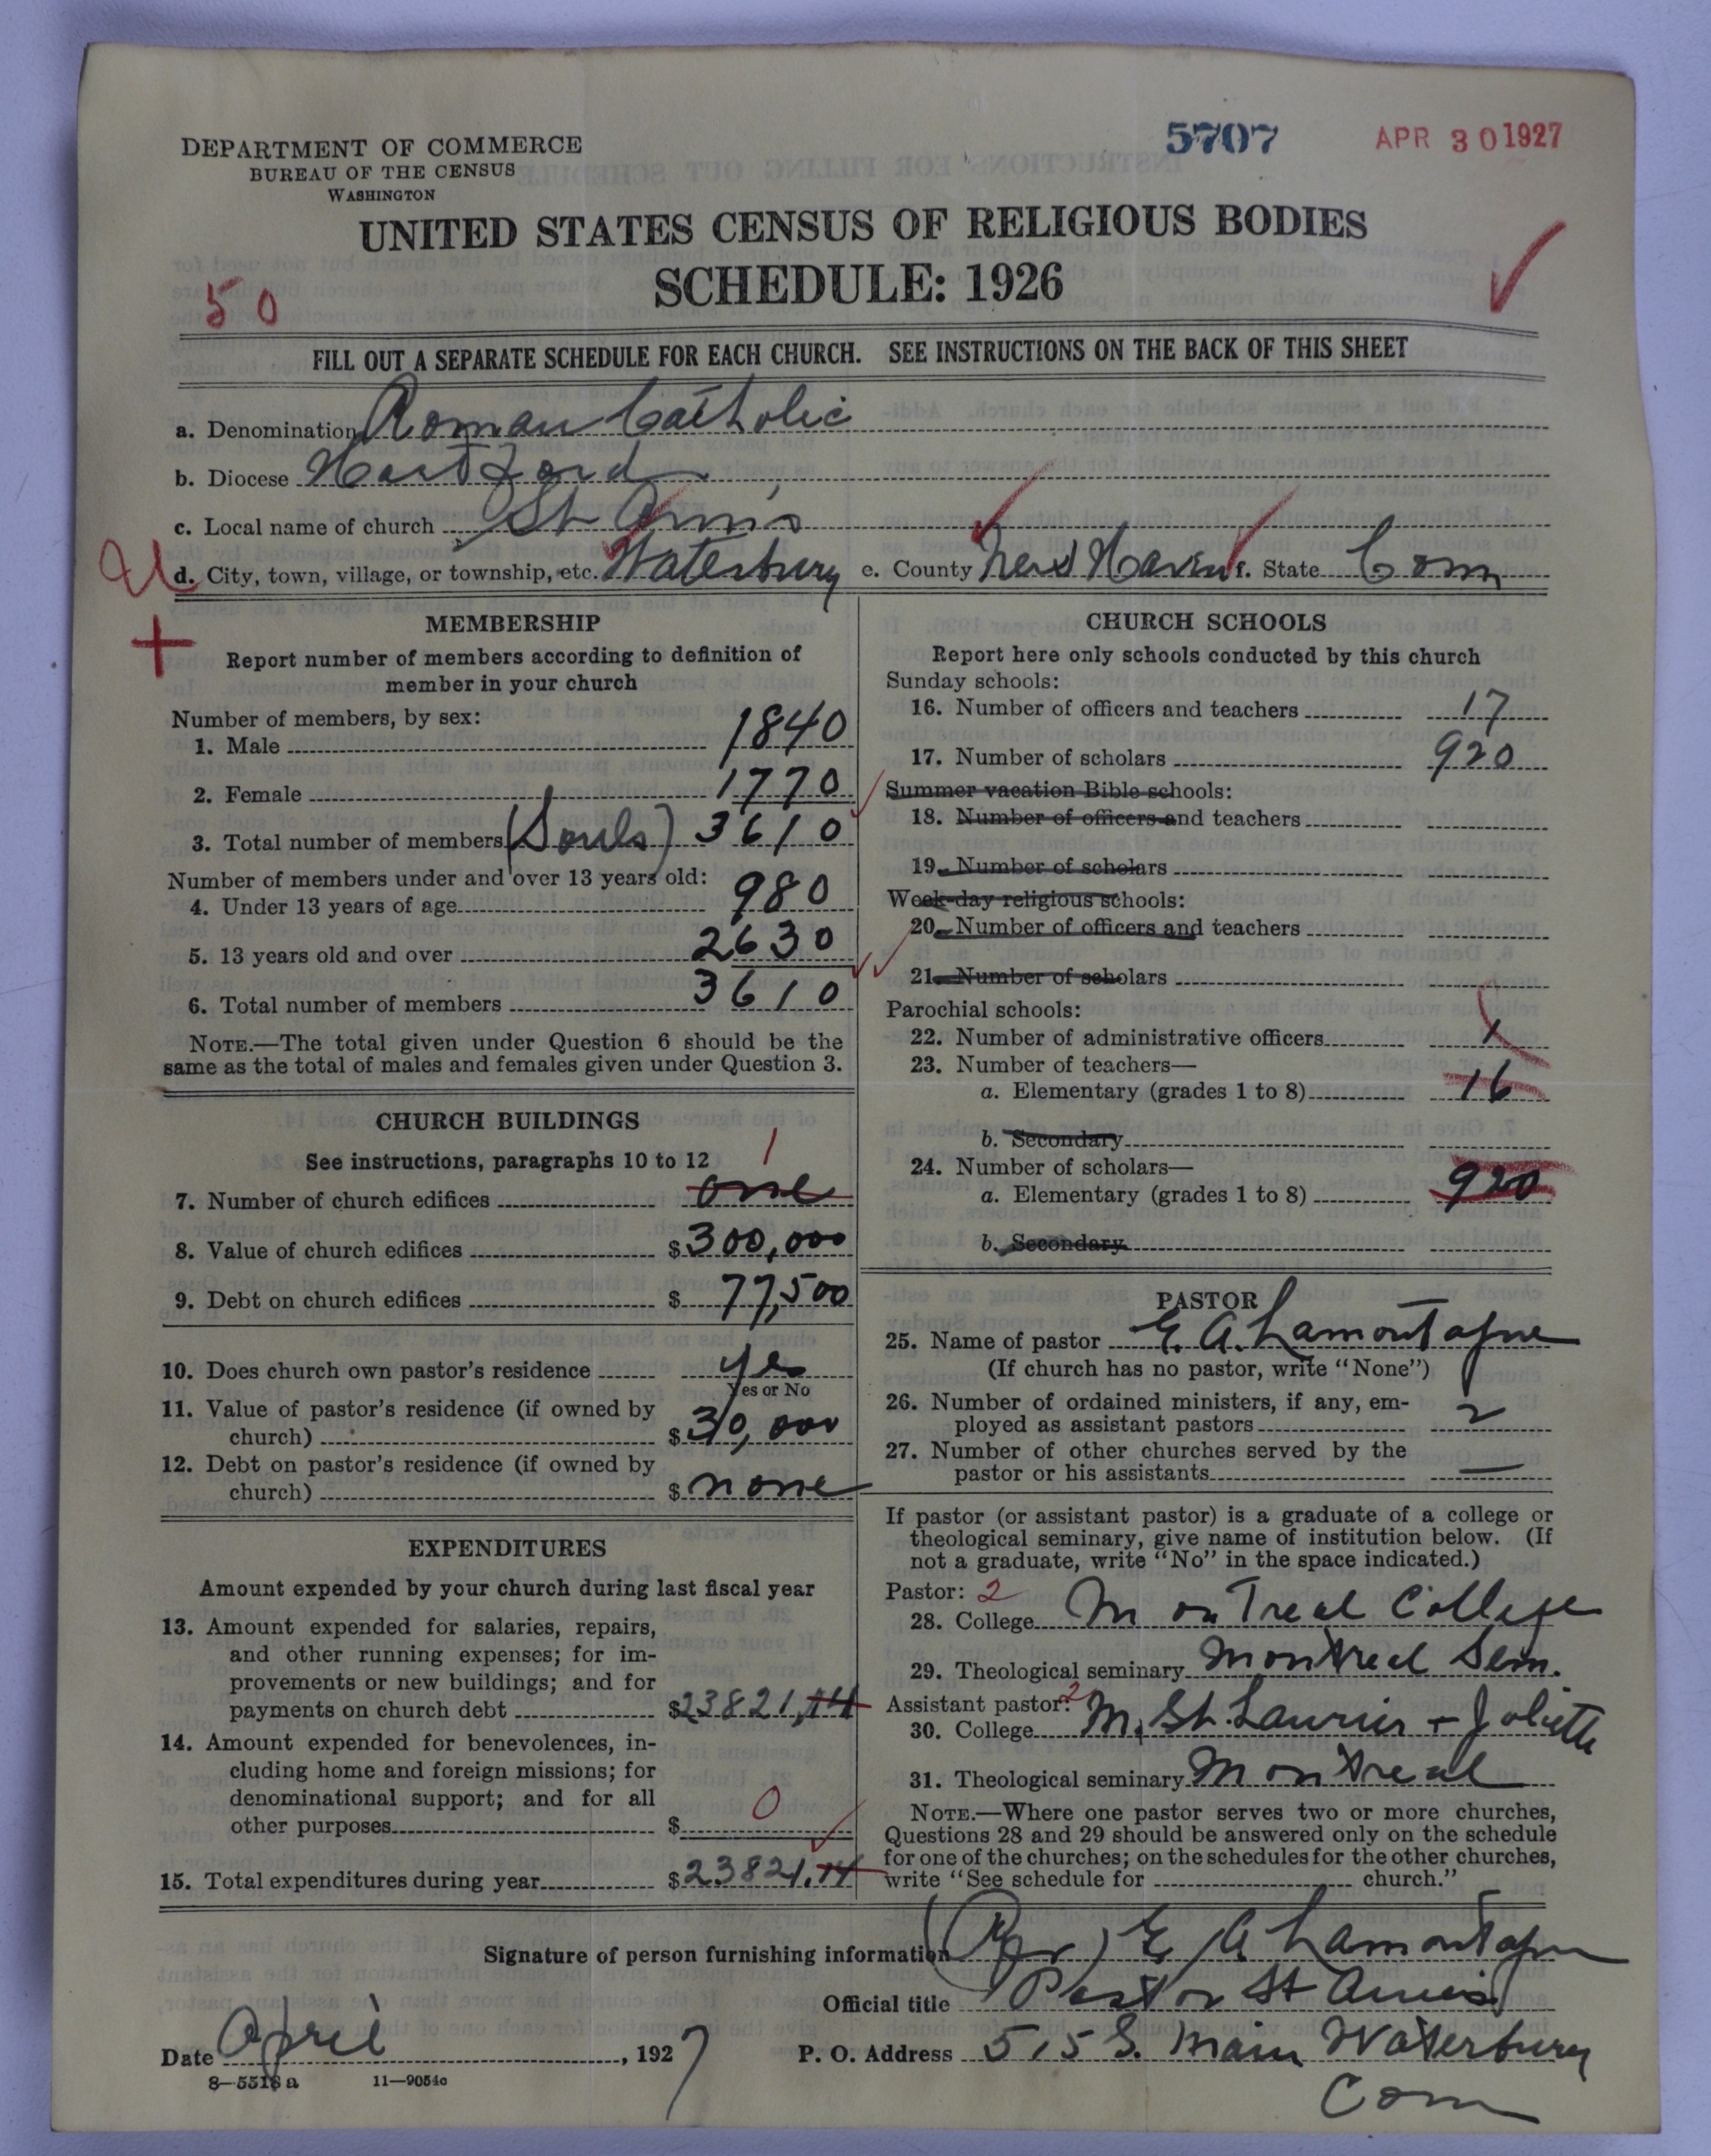 5707
APR 30 1927
DEPARTMENT OF COMMERCE
BUREAU OF THE CENSUS
WASHINGTON
UNITED STATES CENSUS OF RELIGIOUS BODIES
SCHEDULE: 1926
50
FILL OUT A SEPARATE SCHEDULE FOR EACH CHURCH. SEE INSTRUCTIONS ON THE BACK OF THIS SHEET
a. Denomination Roman Catholic
b. Diocese Hartford
c. Local name of church St Ann's
U
d. City, town, village, or township, etc. Waterbury e. County New Haven f. State Conn
+
MEMBERSHIP
Report number of members according to definition of
member in your church
Number of members, by sex:
1. Male 1840
2. Female 1770
3. Total number of members (Souls) 3610
Number of members under and over 13 years old:
4. Under 13 years of age 980
5. 13 years old and over 2630
6. Total number of members 3610
NOTE.—The total given under Question 6 should be the
same as the total of males and females given under Question 3.
CHURCH BUILDINGS
See instructions, paragraphs 10 to 12
1
7. Number of church edifices one
8. Value of church edifices $300,000
9. Debt on church edifices $77,500
10. Does church own pastor's residence yes
Yes or No
11. Value of pastor's residence (if owned by
church) $30,000
12. Debt on pastor's residence (if owned by
church) $none
EXPENDITURES
Amount expended by your church during last fiscal year
13. Amount expended for salaries, repairs,
and other running expenses; for im-
provements or new buildings; and for
payments on church debt $23821,14
14. Amount expended for benevolences, in-
cluding home and foreign missions; for
denominational support; and for all
other purposes $ 0
15. Total expenditures during year $23821.14
CHURCH SCHOOLS
Report here only schools conducted by this church
Sunday schools:
16. Number of officers and teachers 17
17. Number of scholars 920
Summer vacation Bible schools:
18. Number of officers and teachers
19. Number of scholars
Week-day religious schools:
20. Number of officers and teachers
21. Number of scholars
Parochial schools:
22. Number of administrative officers 1
23. Number of teachers—
a. Elementary (grades 1 to 8) 16
b. Secondary
24. Number of scholars—
a. Elementary (grades 1 to 8) 920
b. Secondary
PASTOR
25. Name of pastor E. A. Lamontagne
(If church has no pastor, write "None")
26. Number of ordained ministers, if any, em-
ployed as assistant pastors 2
27. Number of other churches served by the
pastor or his assistants —
If pastor (or assistant pastor) is a graduate of a college or
theological seminary, give name of institution below. (If
not a graduate, write "No" in the space indicated.)
Pastor: 2
28. College Montreal College
29. Theological seminary Montreal Sem.
Assistant pastor: 2
30. College M. St. Laurier + Joliette
31. Theological seminary Montreal
NOTE.—Where one pastor serves two or more churches,
Questions 28 and 29 should be answered only on the schedule
for one of the churches; on the schedules for the other churches,
write "See schedule for church."
Signature of person furnishing information (Rev) E A Lamontagne
Official title Pastor St Ann's
Date April, 1927
P. O. Address 515 S. Main Waterbury
Conn
8—5518a 11—9054c